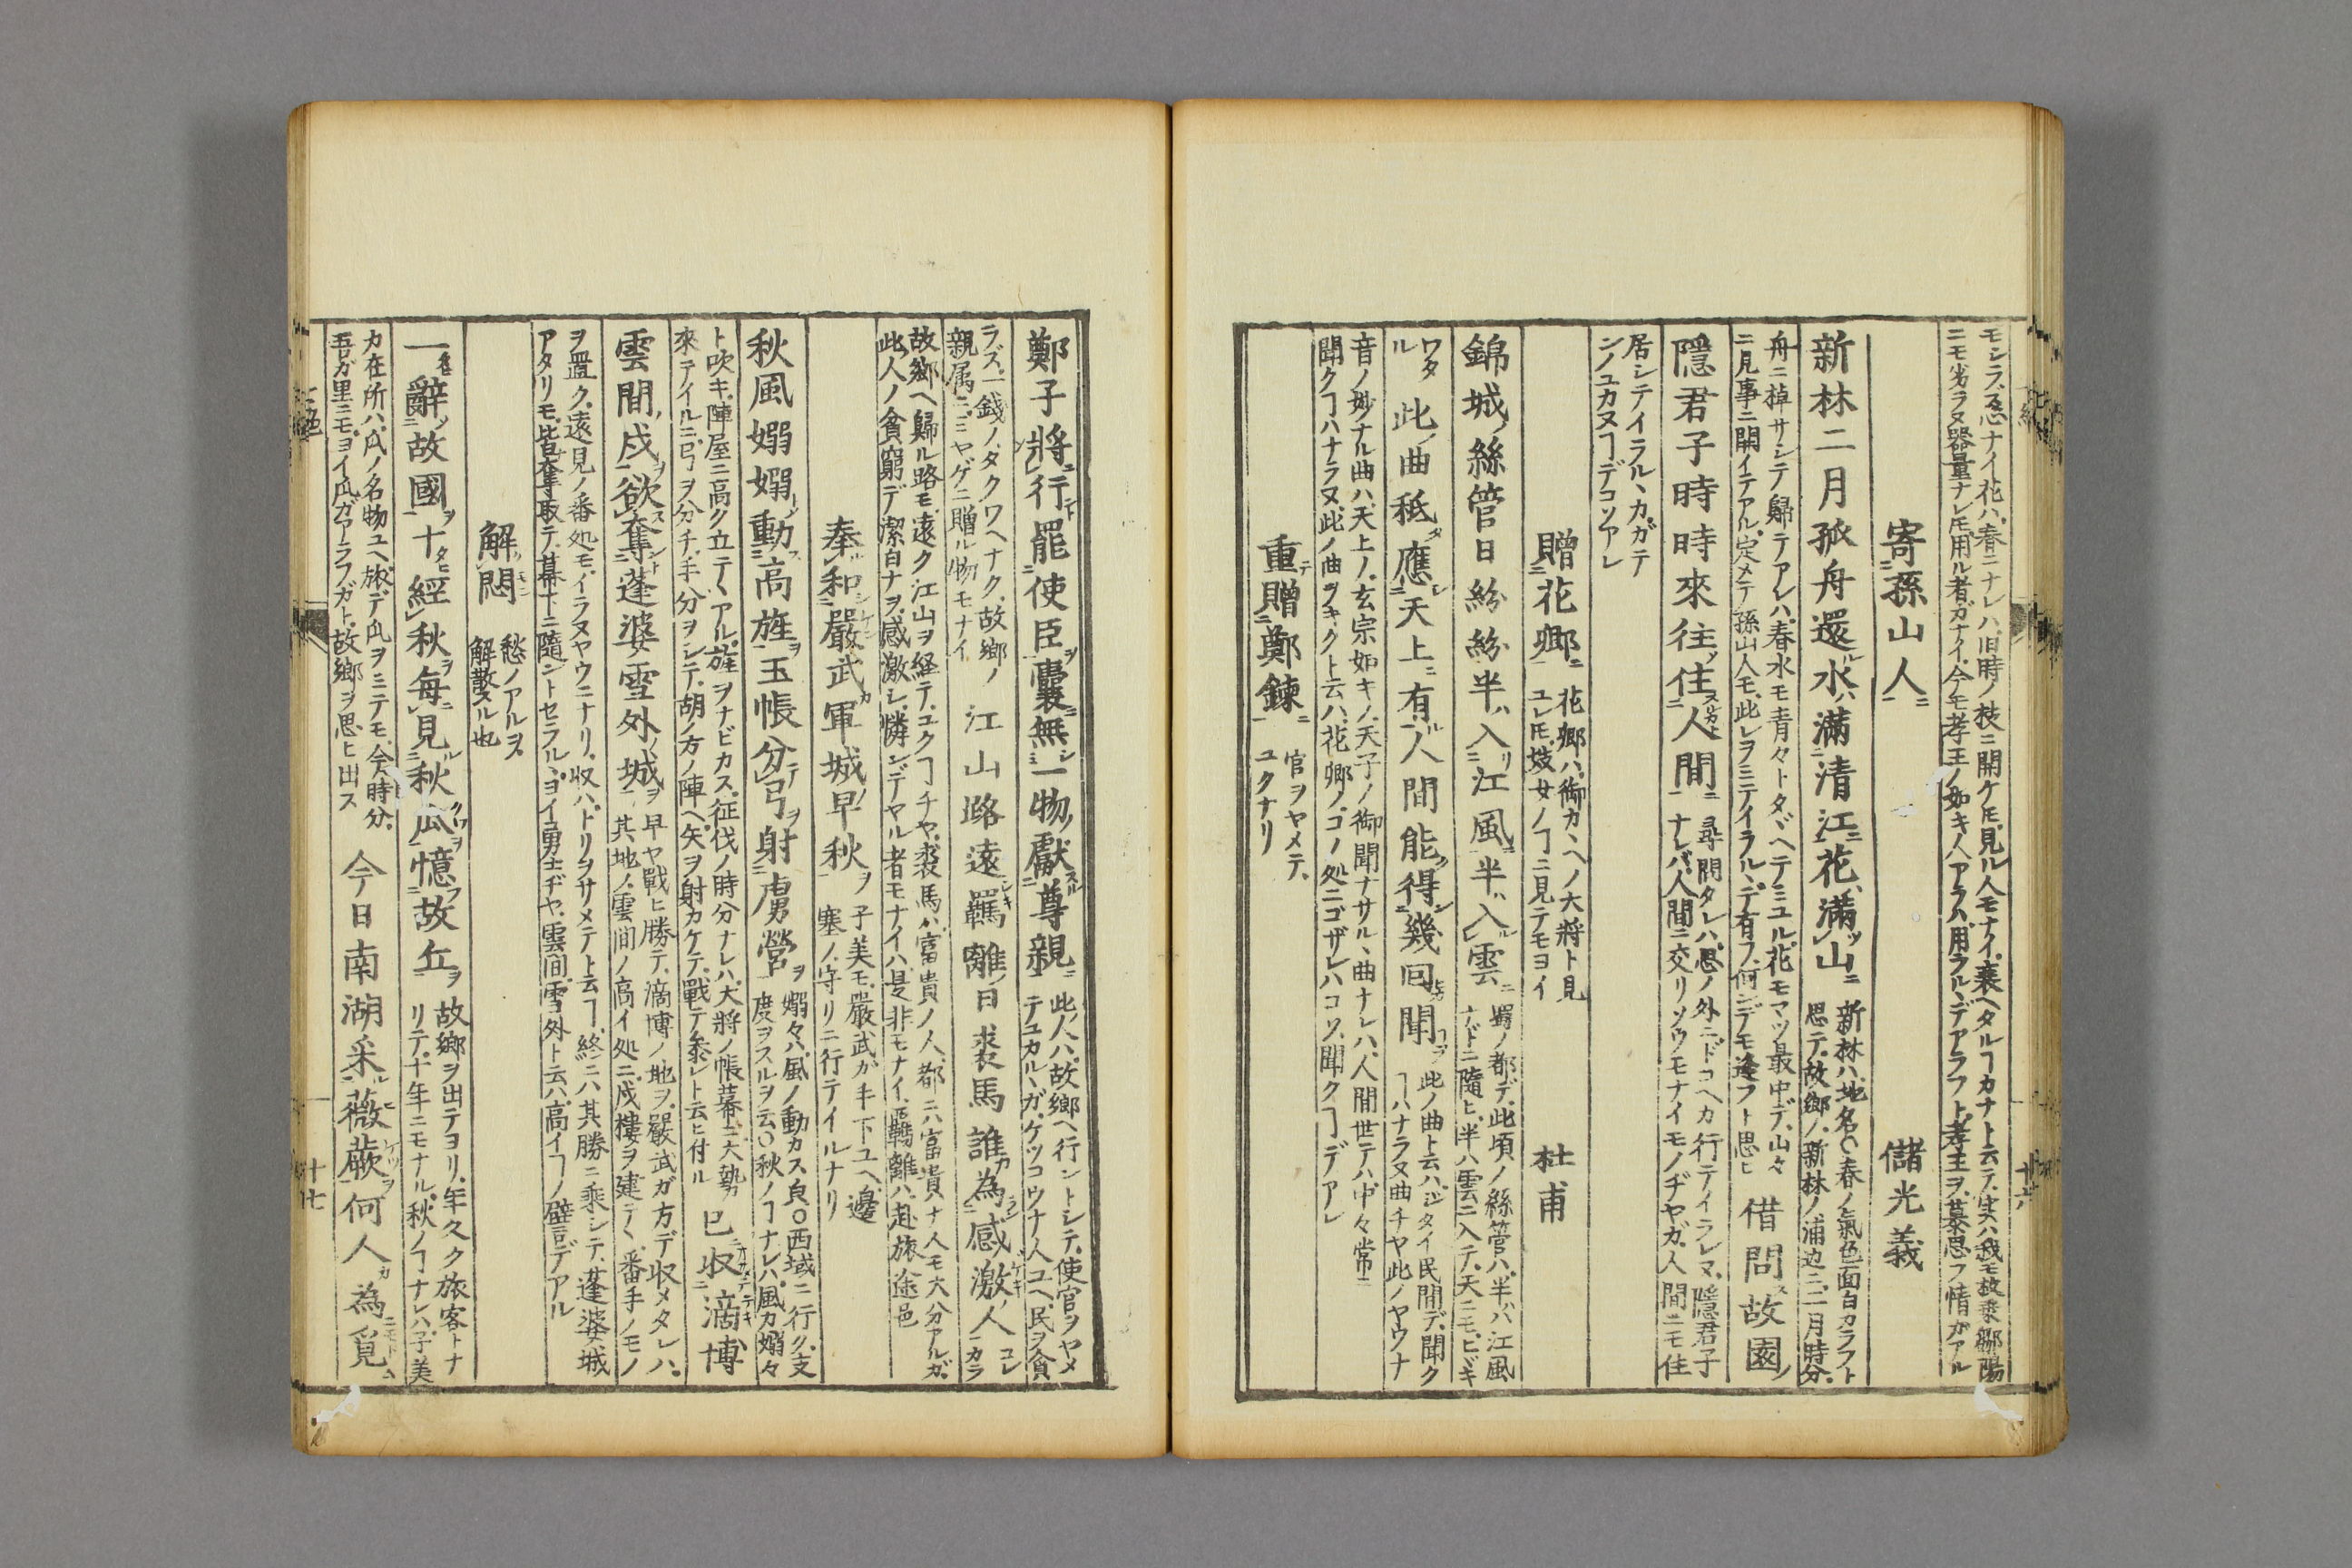 モシラヌ忍ナイ花ハ春ニナレハ旧時ノ枝ニ開ケ𪜈見ル人モナイ衰ヘタルヿカナト云テ実ハ我モ枚乗鄒陽
ニモ劣ラヌ器量ナレ𪜈用ル者ガナイ今モ孝王ノ如キ人アラハ用ラルヽデアラフト孝王ヲ慕思フ情ガアル
寄孫山人 儲光義
新林二月孤舟還水滿清江花滿山
新林ハ地名○春ノ氣色面白カラフト
思テ故郷ノ新林ノ浦辺ニ二月時分
舟ニ棹サシテ歸テアレハ春水モ青々トタヾヘテミユル花モマツ最中デ山々
ニ見事ニ開イテアル定メテ孫山人モ此レヲミテイラルヽデ有フ何ンデモ逢フト思ヒ
借問故園
隱君子時時來往住人間
尋問タレハ思ノ外ニドコヘカ行テイラレヌ隱君子
ナレバ人間ニ交リソウモナイモノヂヤガ人間ニモ住
居シテイラルヽカガテ
ンノユカヌヿデコソアレ
贈花卿
花卿ハ御カヽヘノ大將ト見
ユレ𪜈妓女ノヿニ見テモヨイ
杜甫
錦城絲管日紛紛半入江風半入雲
蜀ノ都デ此頃ノ絲管ハ半ハ江風
ナドニ隨ヒ半ハ雲ニ入テ天ニモヒヾキ
ワタ
ル
此曲秪應天上有人間能得幾回聞
此ノ曲ト云ハジタイ民間デ聞ク
ヿハナラヌ曲チヤ此ノヤウナ
音ノ妙ナル曲ハ天上ノ玄宗如キノ天子ノ御聞ナサルヽ曲ナレハ人間世テハ中々常ニ
聞クヿハナラヌ此ノ曲ヲキクト云ハ花卿ノコノ処ニゴザレハコソ聞クヿデアレ
重贈鄭鍊
官ヲヤメテ
ユクナリ
鄭子將行罷使臣囊無一物獻尊親
此人ハ故郷ヘ行ントシテ使官ヲヤメ
テユカルヽガケツコウナ人ユヘ民ヲ貪
ラズ一錢ノタクワヘナク故郷ノ
親属ニミヤゲニ贈ル物モナイ
江山路遠羈離日裘馬誰為感激人
コレ
カラ
故郷ヘ歸ル路モ遠ク江山ヲ経テユクヿチヤ裘馬ハ富貴ノ人都ニハ富貴ナ人モ大分アルガ
此人ノ貪窮デ潔白ナヲ感激シ憐ンデヤル者モナイハ是非モナイ羈離ハ赴旅途邑
奉和嚴武軍城早秋
子美モ嚴武ガ手下ユヘ邊
塞ノ守リニ行テイルナリ
秋風嫋嫋動高旌玉帳分弓射虜營
嫋々ハ風ノ動カス皃○西域ニ行ク支
度ヲスルヲ云○秋ノヿナレハ風カ嫋々
ト吹キ陣屋ニ高ク立テヽアル旌ヲナビカス征伐ノ時分ナレハ大將ノ帳幕ニ大勢
來テイルニ弓ヲ分チ手分ヲシテ胡ノ方ノ陣ヘ矢ヲ射カケテ戰テ參レト云ヒ付ル
已収滴博
雲間戍欲奪蓬婆雪外城
早ヤ戰ヒ勝テ滴博ノ地ヲ嚴武ガ方デ収メタレハ
其地ノ雲間ノ高イ処ニ戍樓ヲ建テヽ番手ノモノ
ヲ置ク遠見ノ番処モイラヌヤウニナリ収ハトリヲサメテト云ヿ終ニハ其勝ニ乘シテ蓬婆城
アタリモ皆奪取テ幕下ニ隨ントセラルヽヨイ勇士ヂヤ雲間雪外ト云ハ高イヿノ譬言デアル
解悶
愁ノアルヲ
解散スル也
一辭故國十經秋每見秋瓜憶故丘
故郷ヲ出テヨリ年久ク旅客トナ
リテ十年ニモナル秋ノヿナレハ子美
カ在所ハ瓜ノ名物ユヘ旅デ瓜ヲミテモ今時分
吾ガ里ニモヨイ瓜ガアラフガト故郷ヲ思ヒ出ス
今日南湖采薇蕨何人為覓
十七